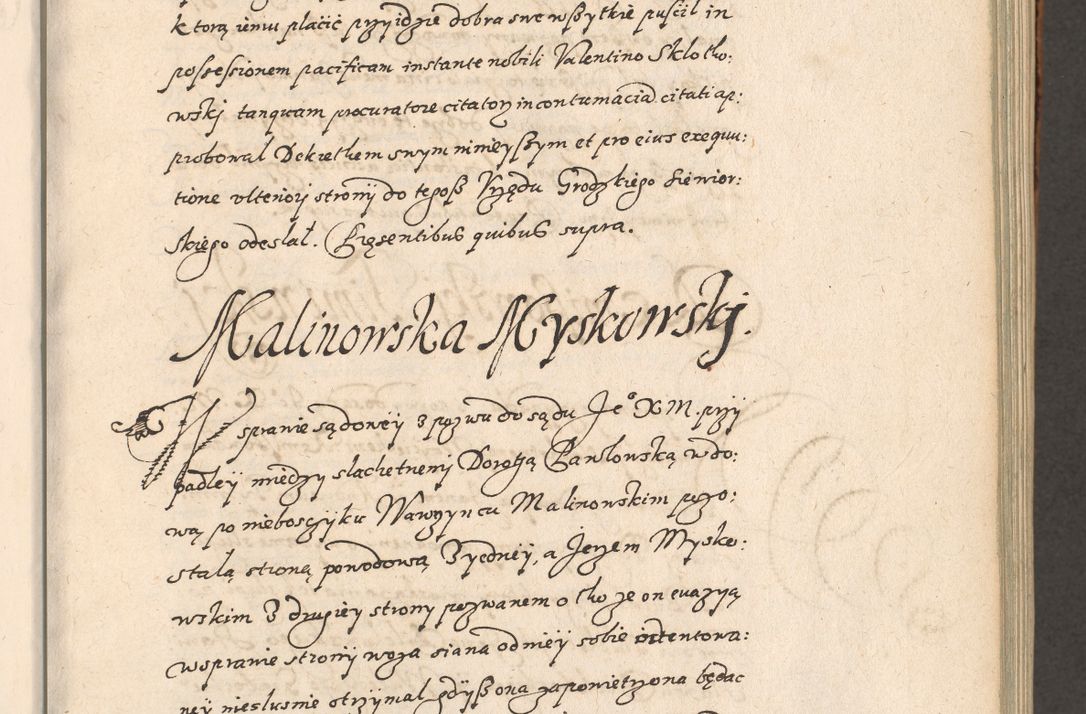 ktorą iemu płacić przyidzie dobra swe wszytkie puścił in
possessionem pacificam instante nobili Valentino Sklotko:
wskj tanquam procuratore citatorum in contumaciã citati ap:
probował Dekrethem swym ninieyszym et pro eius exequu:
tione vlteriorj strony do tegosz Vrzędu Grodzkiego Siewior:
skiego odesłał. Pręsentibus quibus supra.
Malinowska Myskowskj.
W sprawie sądowey z pozwu do sądu Jeº X M. przy
padłey między slachetnenj Dorotą Pawlowską wdo:
wą po nieboszczyku Wawrzyncu Malinowskim pozo:
stałą stroną powodową Zyedney, a Jerzem Mysko:
wskim Z drugiey strony pozwanem o tho ze on evazyą
wsprawie strony woza siana od niey sobie intentowa:
ney niesłusnie otrzymał gdysz ona zapowietrzona będąc